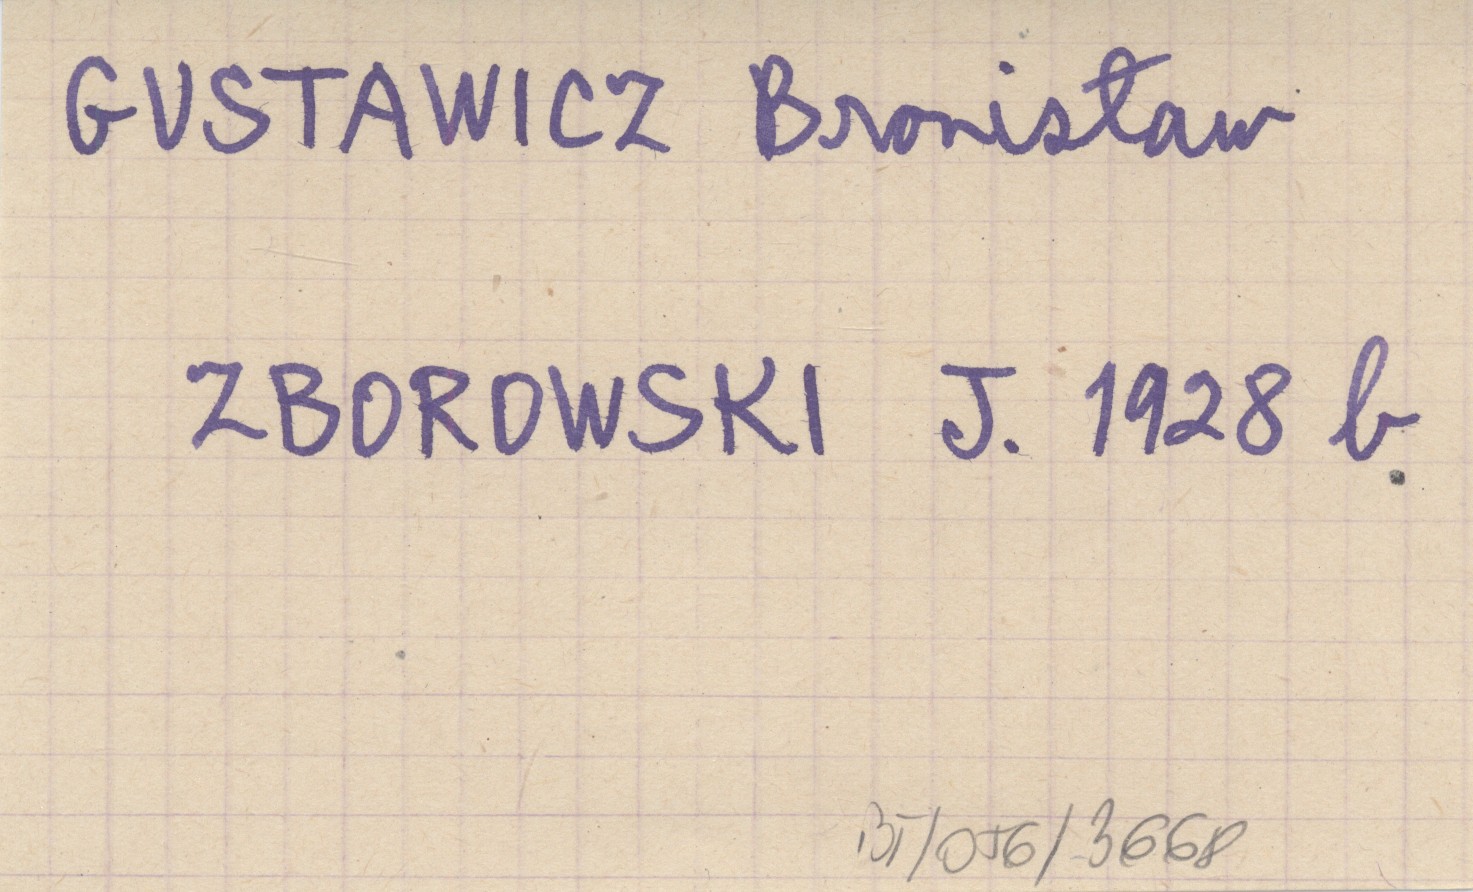 GUSTAWICZ Bronisław
ZBOROWSKI J. 1928 b
BT/OTG/3668